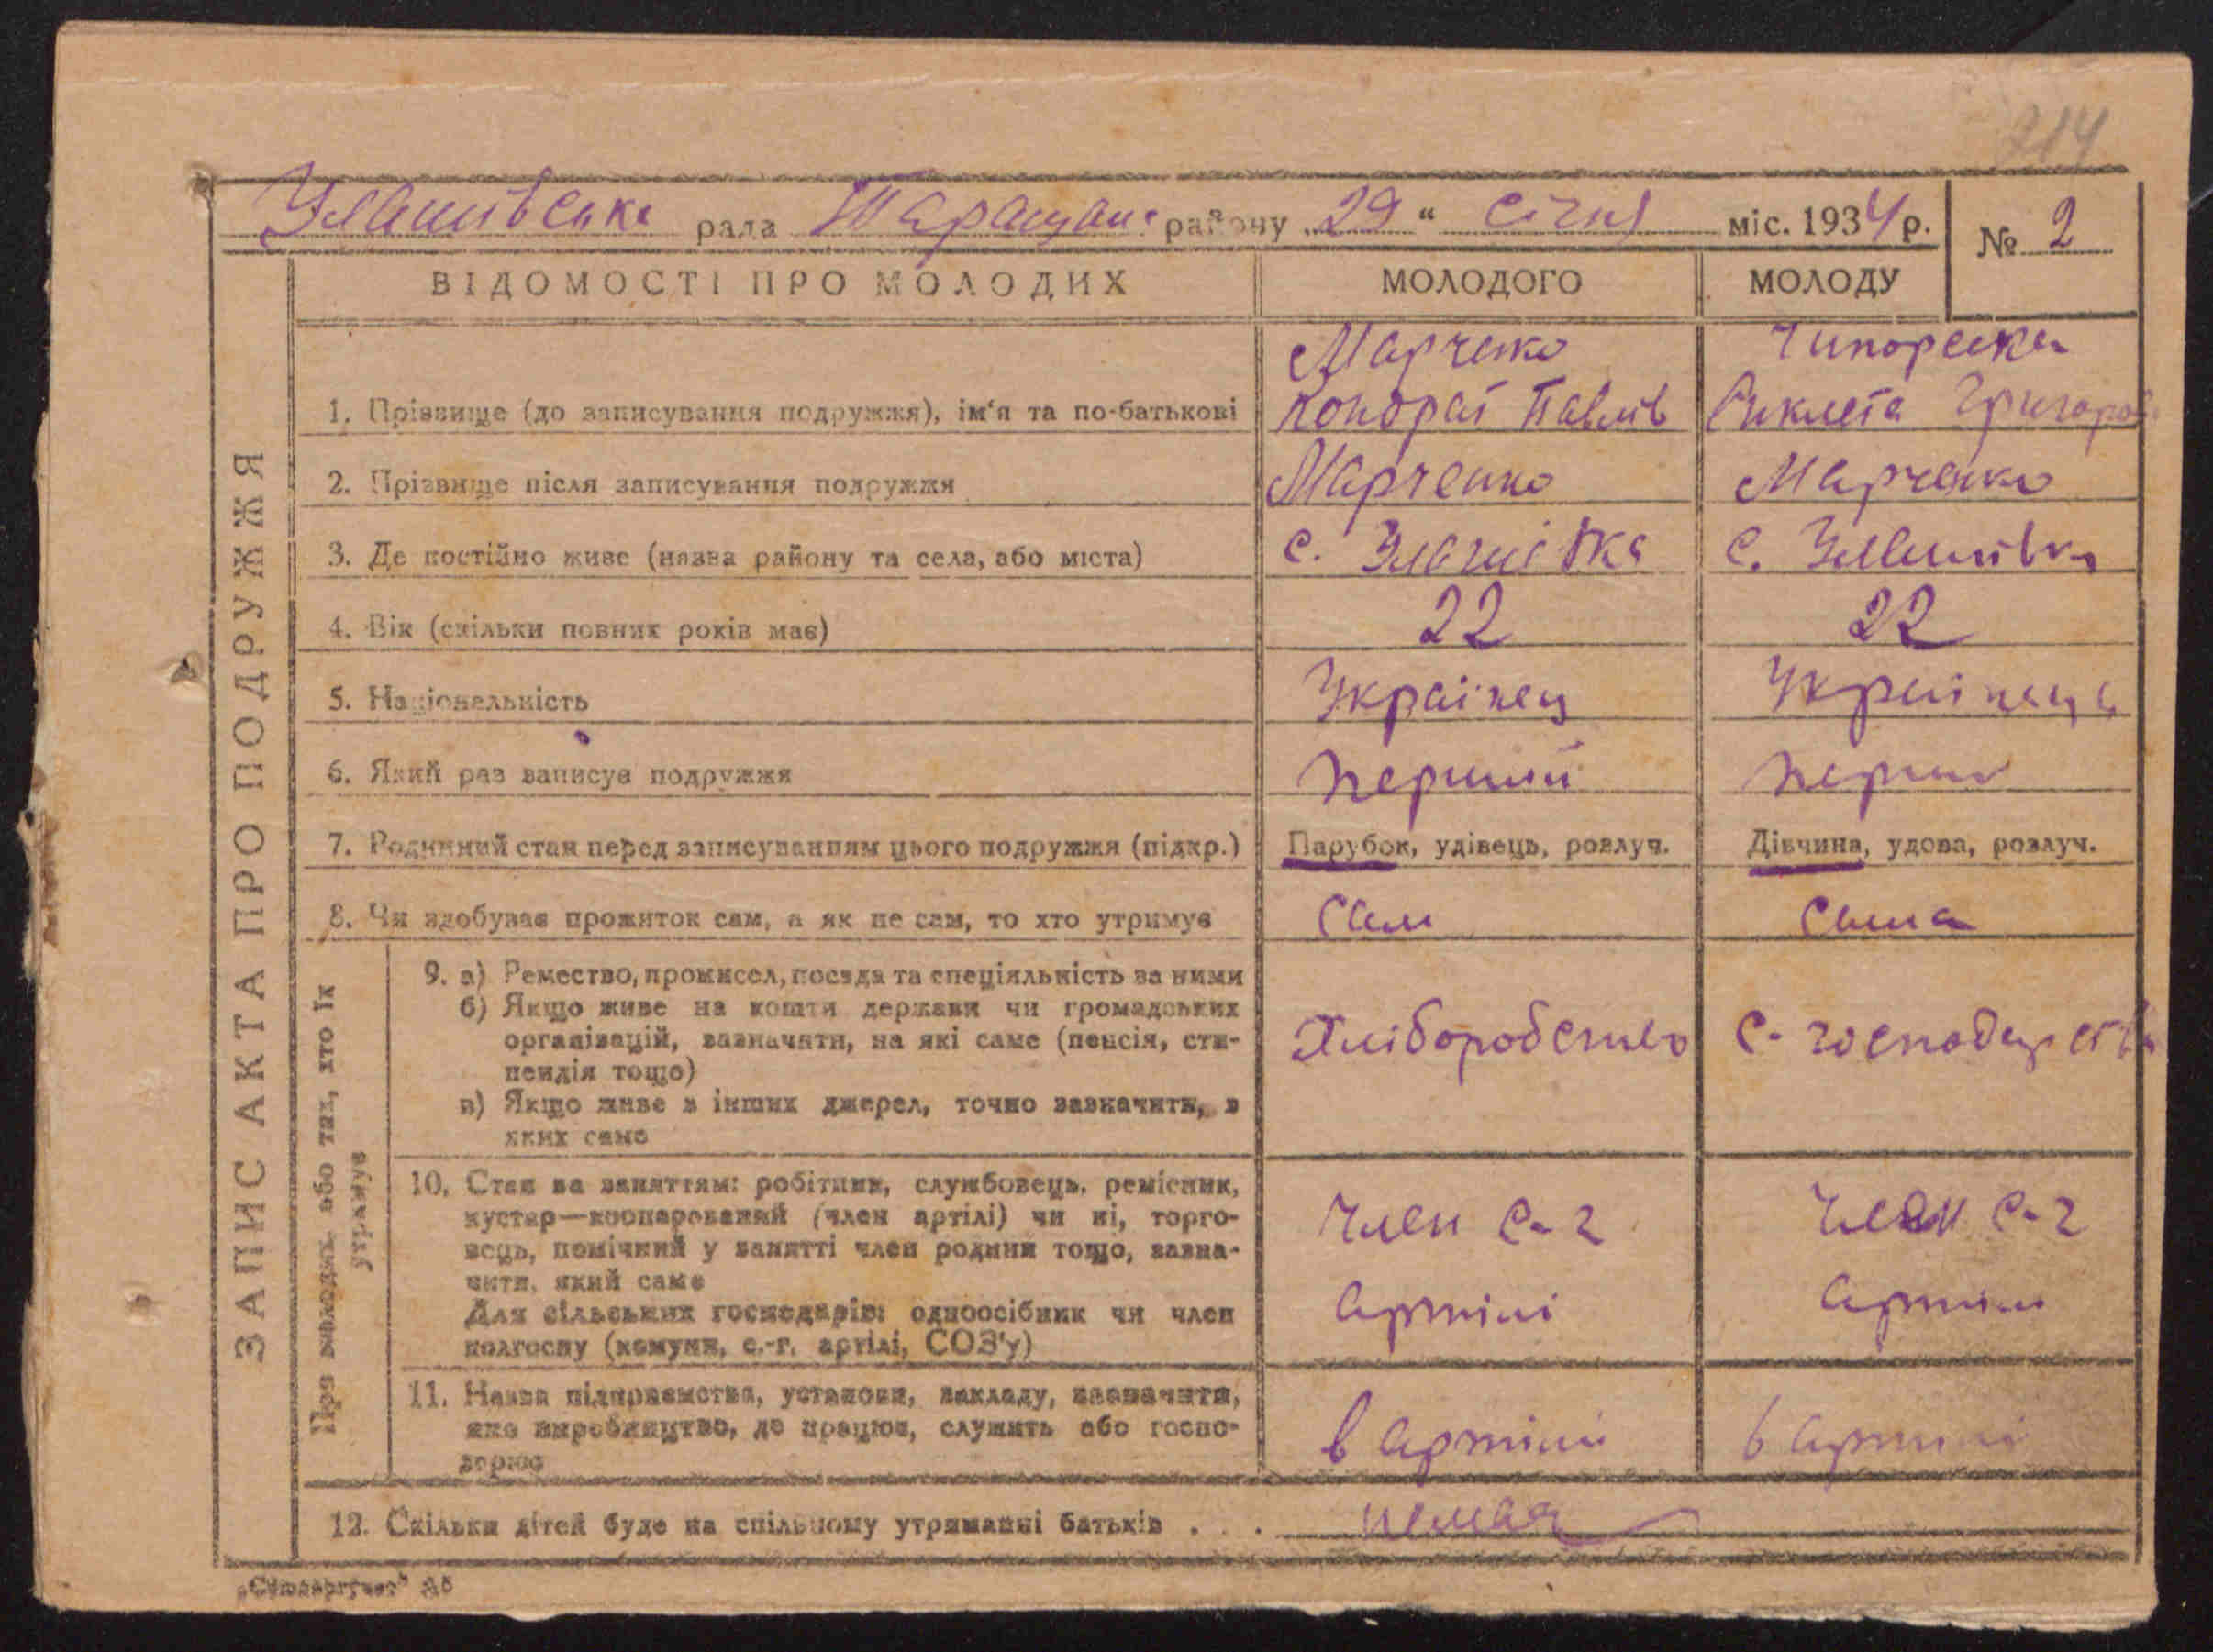 214
Улашівська рада Таращан. району „29“ Січня міс. 1934 р.
№ 2
ВІДОМОСТІ ПРО МОЛОДИХ
МОЛОДОГО
МОЛОДУ
ЗАПИС АКТА ПРО ПОДРУЖЖЯ
1. Прізвище (до записування подружжя), ім'я та по-батькові
Марченко
Кондрат Павлів
Чипорська
Григоров
2. Прізвище після записування подружжя
Марченко
Марченко
3. Де постійно живе (назва району та села, або міста)
с. Улашівка
с. Улашівка
4. Вік (скільки повних років має)
22
22
5. Національність
Українец
Українець
6. Який раз записує подружжя
перший
перший
7. Родинний стан перед записуванням цього подружжя (підкр.)
Парубок, удівець, розлуч.
Дівчина, удова, розлуч.
8. Чи здобуває прожиток сам, а як не сам, то хто утримує
Сам
Сама
При молодих, або тих, хто їх утримує
9. а) Ремество, промисел, посада та спеціяльність за ними
б) Якщо живе на кошти держави чи громадських
організацій, зазначити, на які саме (пенсія, сти-
пендія тощо)
в) Якщо живе з інших джерел, точно зазначити, з
яких саме
Хліборобство
С-господарств
10. Стан за заняттям: робітник, службовець, ремісник,
кустар—кооперований (член артілі) чи ні, торго-
вець, помічний у занятті член родини тощо, зазна-
чити, який саме
Для сільських господарів: одноосібник чи член
колгоспу (комуни, с.-г. артілі, СОЗ'у)
Член с-г
артілі
Член с-г
артілі
11. Назва підприємства, установи, закладу, зазначити,
яке виробництво, де працює, служить або госпо-
дарює
в артілі
в артілі
12. Скільки дітей буде на спільному утриманні батьків . . .
немає